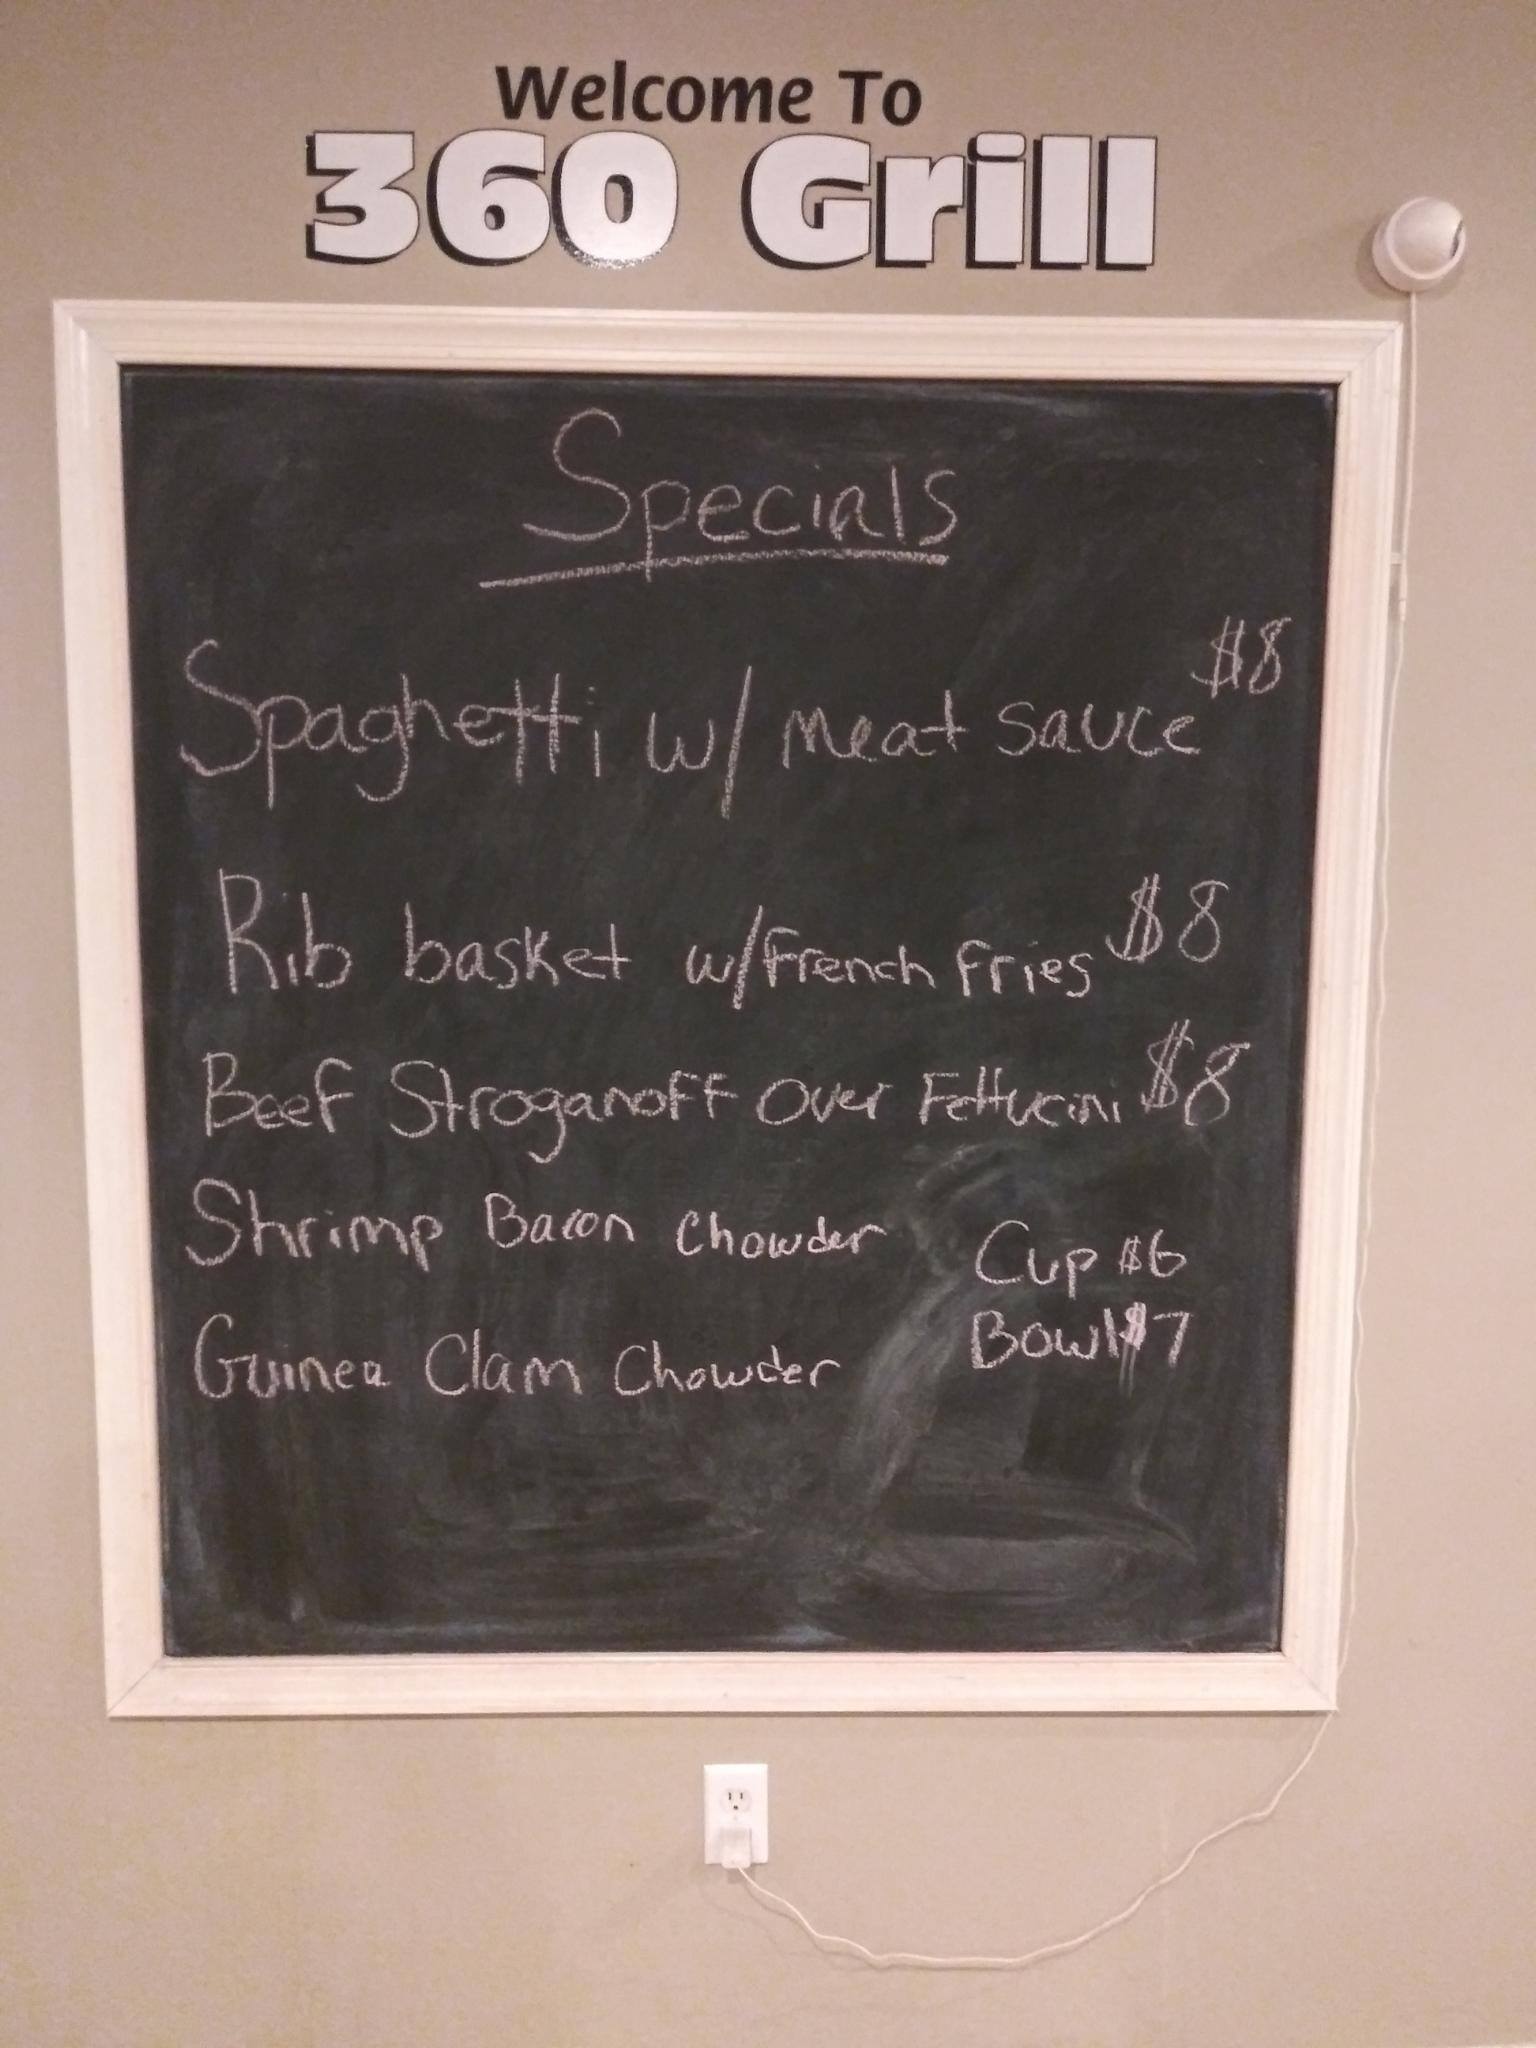 Welcome To
360 Grill
Specials
Spaghetti w/ meat sauce $8
Rib basket w/French fries $8
Beef Stroganoff Over Fettucini $8
Shrimp Bacon Chowder
Cup $6
Bowl $7
Guinea Clam Chowder